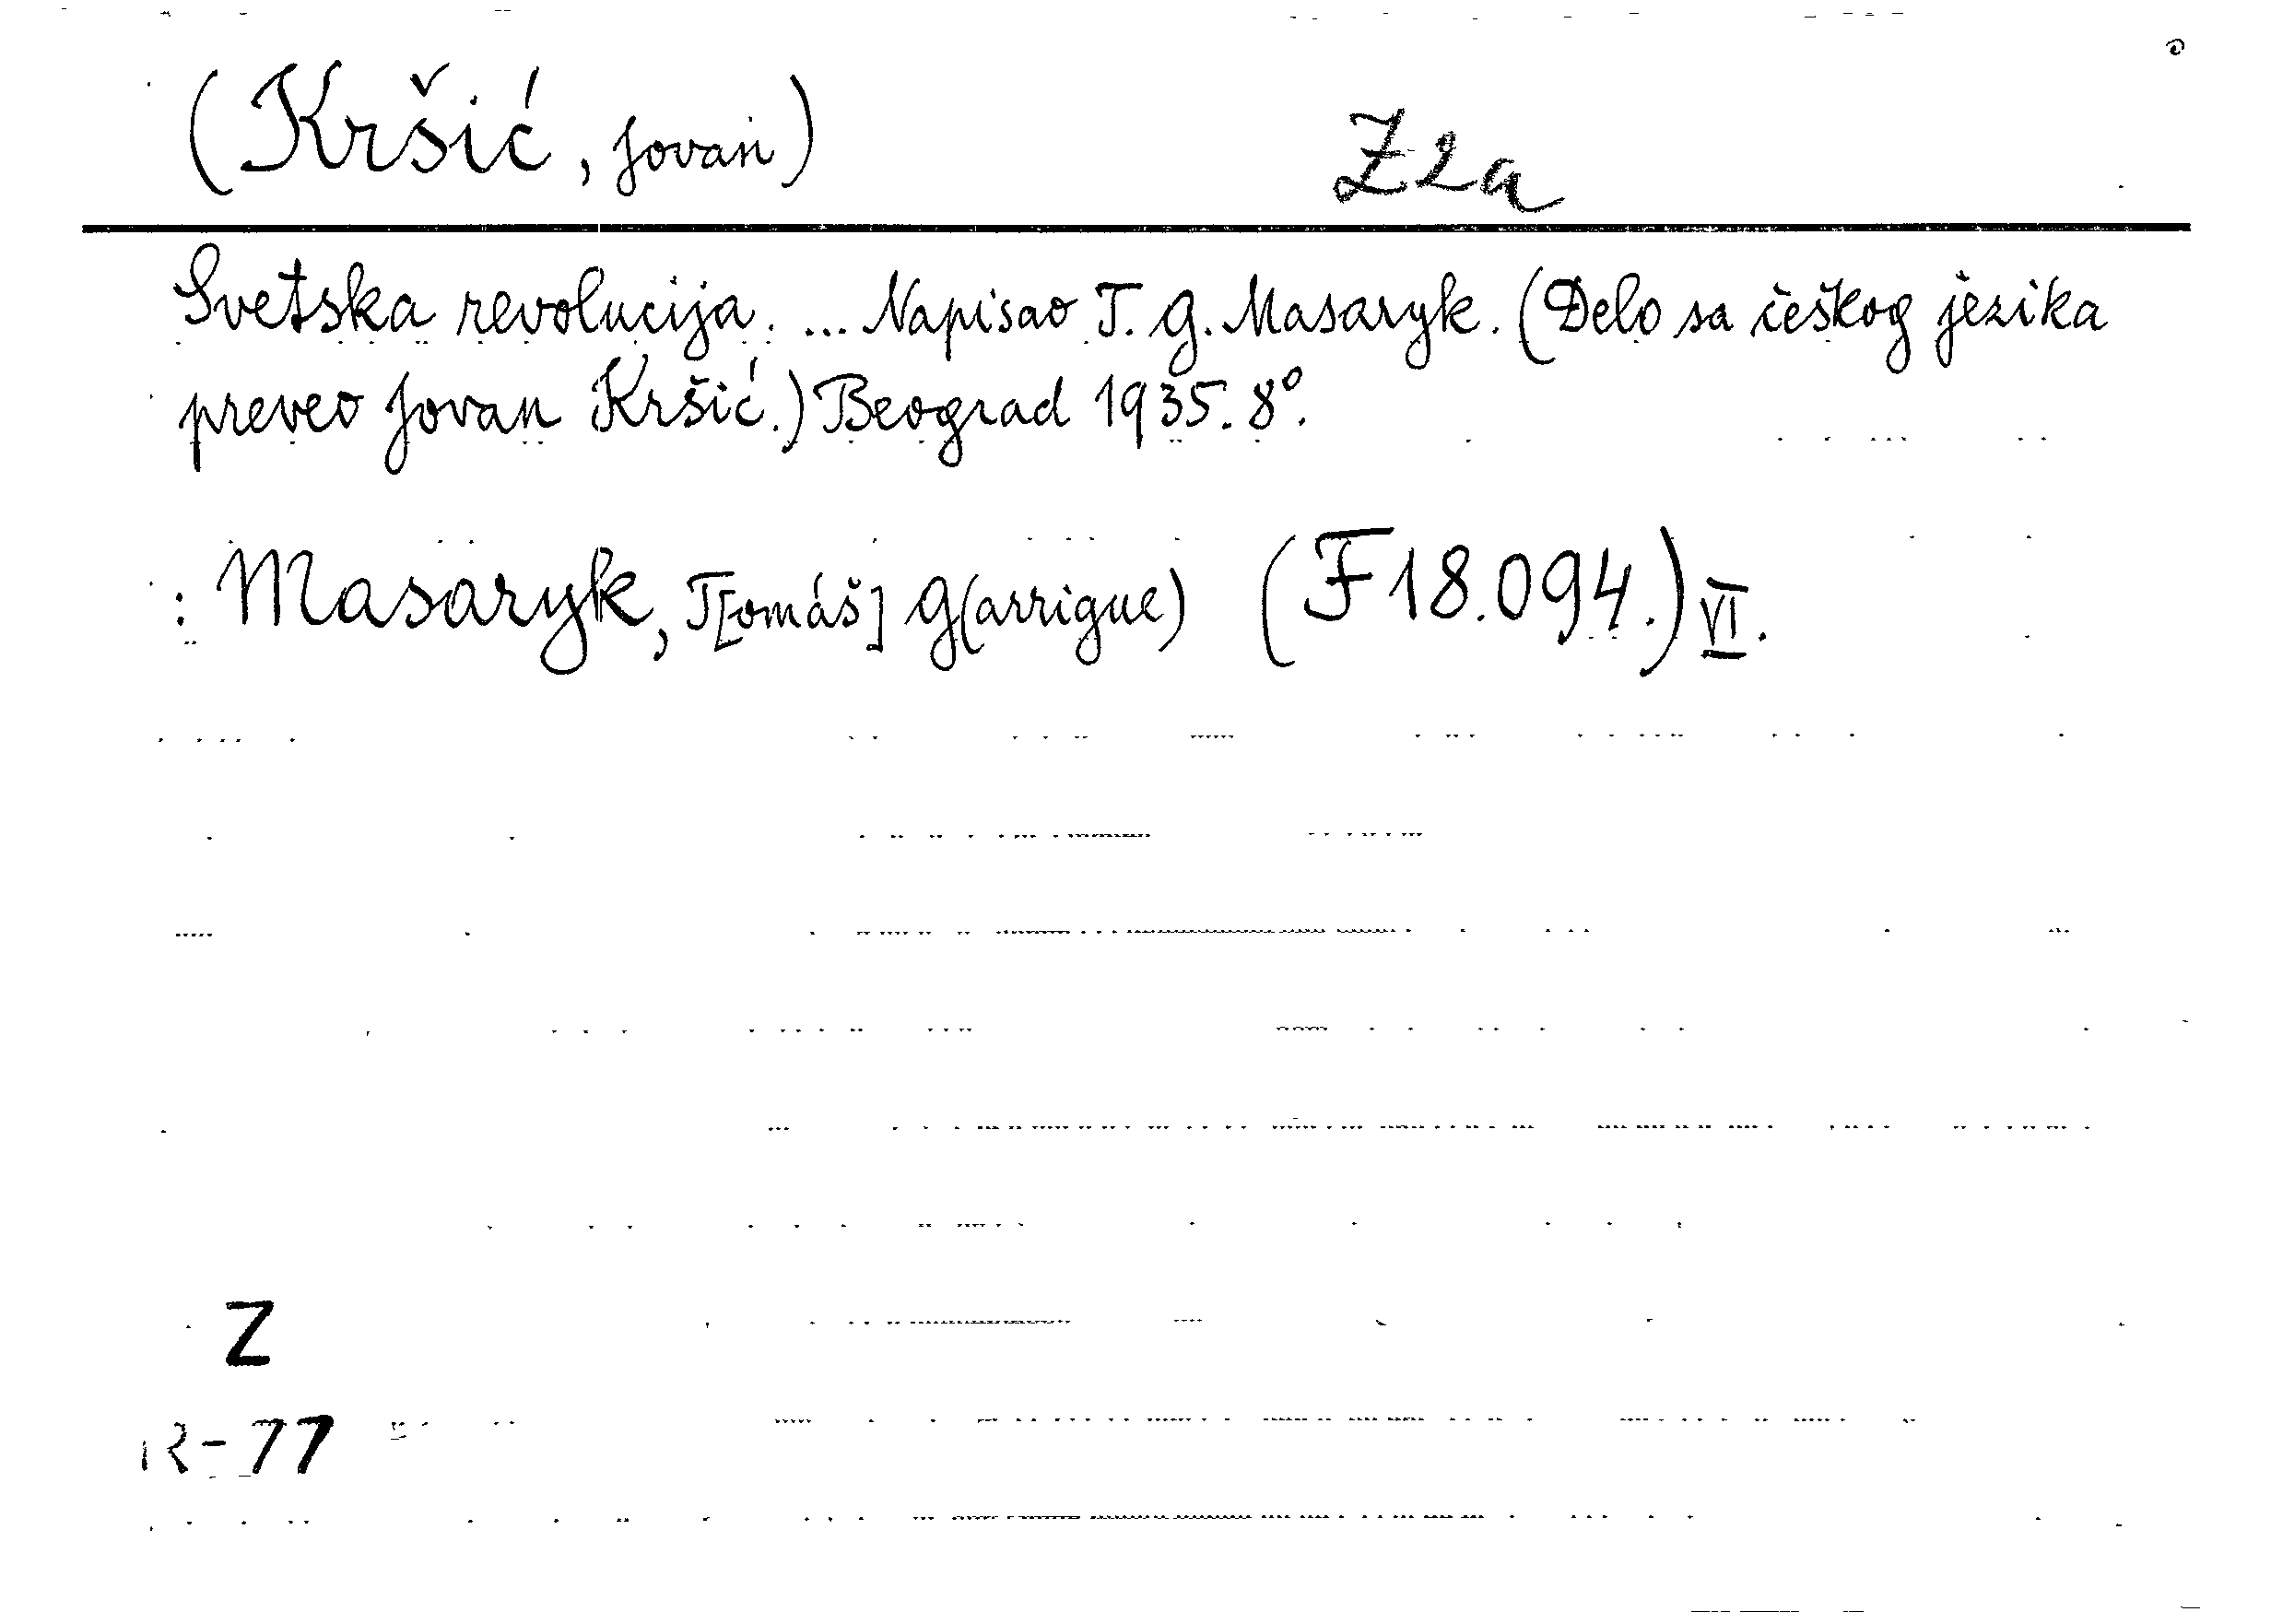 (Kršić, Jovan) Z2a
Svetska revolucija. ... Napisao T. G. Masaryk. (Delo sa češkog jezika
preveo Jovan Kršić.) Beograd 1935. 8°.
: Masaryk, T[omáš] G(arrigue) (F18.094.) VI.
Z
R-77